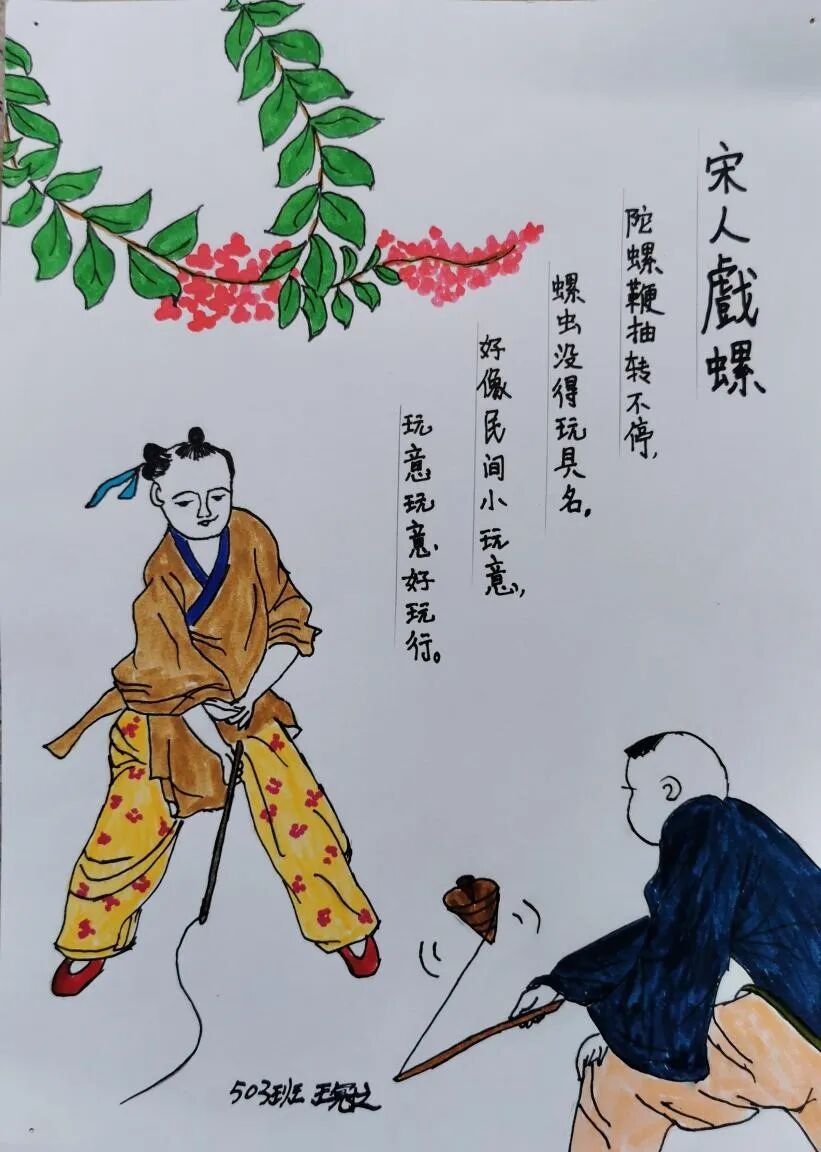 宋人戲螺
陀螺鞭抽转不停，
螺虫没得玩具名。
好像民间小玩意，
玩意玩意好玩行。
503班 王冠之